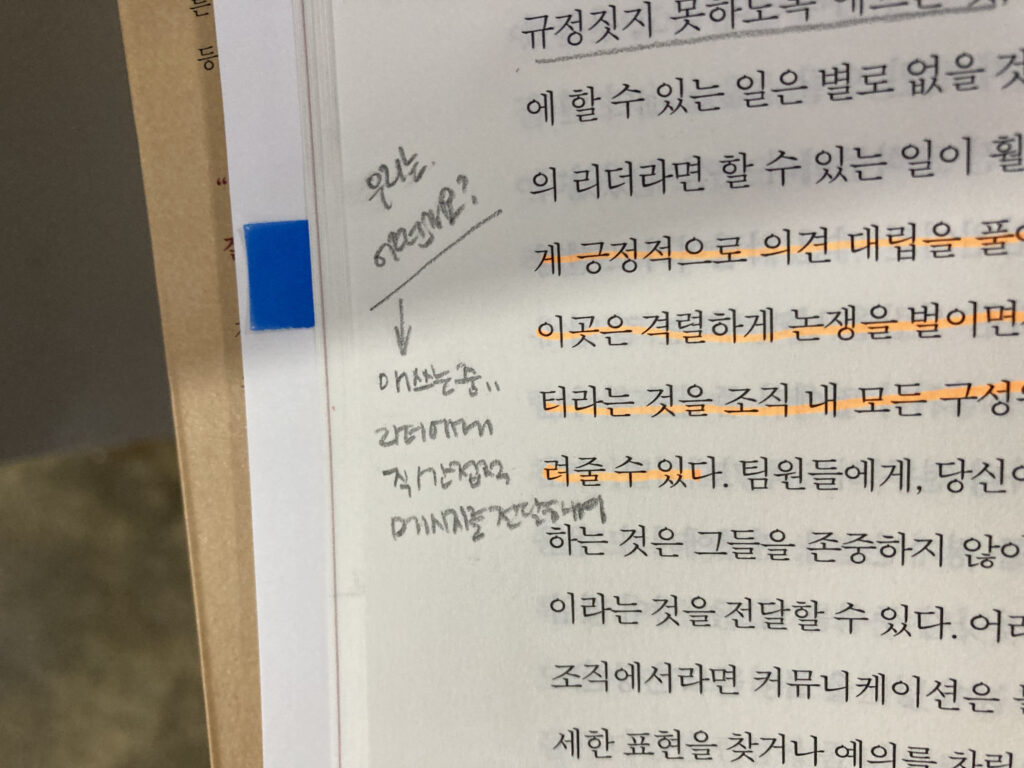 등
우리는
어떤가요?
애쓰는 중..
리더에게
직/간접적
메시지를 전달하며
규정짓지 못하도록 애쓰는
에 할 수 있는 일은 별로 없을 것
의 리더라면 할 수 있는 일이 훨
게 긍정적으로 의견 대립을 풀어
이곳은 격렬하게 논쟁을 벌이면
터라는 것을 조직 내 모든 구성
려줄 수 있다. 팀원들에게, 당신이
하는 것은 그들을 존중하지 않
이라는 것을 전달할 수 있다. 어려
조직에서라면 커뮤니케이션은
세한 표현을 찾거나 예의를 차린